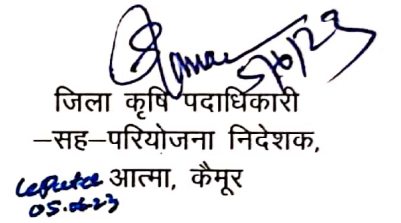 5/6/23
जिला कृषि पदाधिकारी
–सह–परियोजना निदेशक,
आत्मा, कैमूर
05.06.23